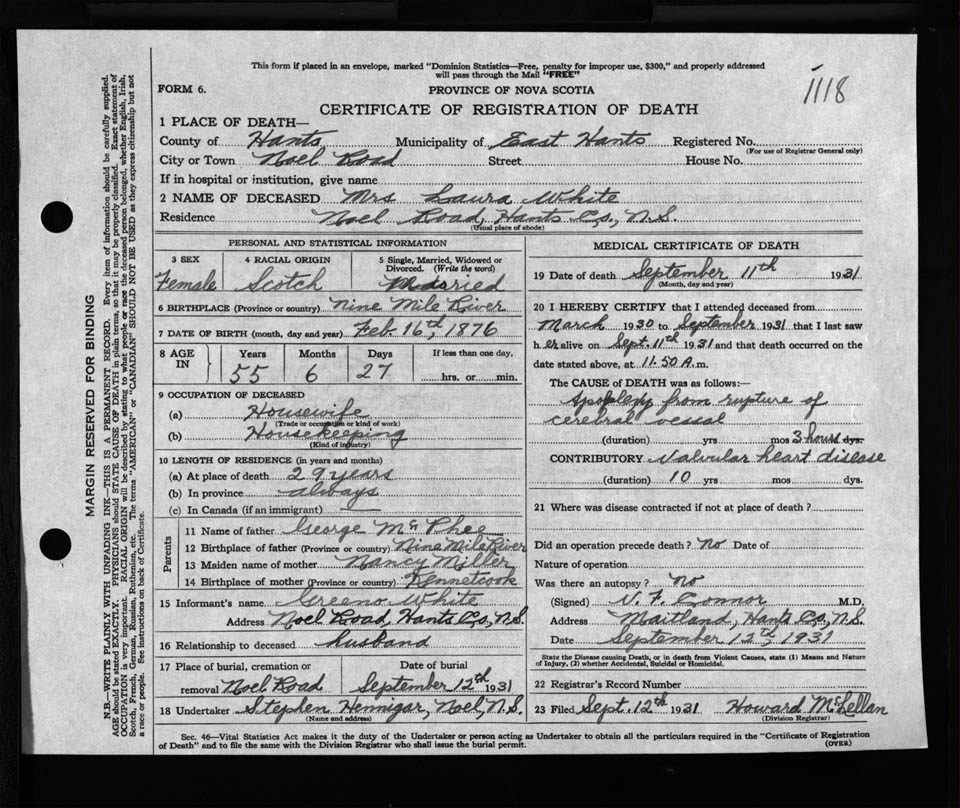 This form if placed in an envelope, marked "Dominion Statistics—Free, penalty for improper use, $300," and properly addressed
will pass through the Mail "FREE"
1118
FORM 6.
PROVINCE OF NOVA SCOTIA
CERTIFICATE OF REGISTRATION OF DEATH
1 PLACE OF DEATH—
County of Hants Municipality of East Hants Registered No.
(For use of Registrar General only)
City or Town Noel Road Street House No.
If in hospital or institution, give name
2 NAME OF DECEASED Mrs Laura White
Residence Noel Road, Hants Co, N.S.
(Usual place of abode)
PERSONAL AND STATISTICAL INFORMATION
3 SEX
Female
4 RACIAL ORIGIN
Scotch
5 Single, Married, Widowed or
Divorced. (Write the word)
Married
6 BIRTHPLACE (Province or country) Nine Mile River
7 DATE OF BIRTH (month, day and year) Feb 16th, 1876
8 AGE IN
Years Months Days If less than one day,
55 6 27 hrs. or min.
9 OCCUPATION OF DECEASED
(a) Housewife
(Trade or occupation or kind of work)
(b) Housekeeping
(Kind of industry)
10 LENGTH OF RESIDENCE (in years and months)
(a) At place of death 29 years
(b) In province always
(c) In Canada (if an immigrant)
Parents
11 Name of father George McPhee
12 Birthplace of father (Province or country) Nine Mile River
13 Maiden name of mother Nancy Miller
14 Birthplace of mother (Province or country) Kennetcook
15 Informant's name Greeno White
Address Noel Road, Hants Co, N.S.
16 Relationship to deceased husband
17 Place of burial, cremation or
removal Noel Road
Date of burial
September 12th 1931
18 Undertaker Stephen Hennigar, Noel, N.S.
(Name and address)
MEDICAL CERTIFICATE OF DEATH
19 Date of death September 11th 1931
(Month, day and year)
20 I HEREBY CERTIFY that I attended deceased from
March 1930 to September 1931 that I last saw
h er alive on Sept. 11th 1931 and that death occurred on the
date stated above, at 11.50 A.m.
The CAUSE OF DEATH was as follows:—
Apoplexy from rupture of
cerebral vessal
(duration) yrs mos 3 hours dys.
CONTRIBUTORY Valvular heart disease
(duration) 10 yrs mos dys.
21 Where was disease contracted if not at place of death?
Did an operation precede death? No Date of
Nature of operation
Was there an autopsy? No
(Signed) V. F. Connor M.D.
Address Maitland, Hants Co, N.S.
Date September 12th, 1931
State the Disease causing Death, or in death from Violent Causes, state (1) Means and Nature
of Injury, (2) whether Accidental, Suicidal or Homicidal.
22 Registrar's Record Number
23 Filed Sept. 12th 1931 Howard McLellan
(Division Registrar)
Sec. 46—Vital Statistics Act makes it the duty of the Undertaker or person acting as Undertaker to obtain all the particulars required in the "Certificate of Registration
of Death" and to file the same with the Division Registrar who shall issue the burial permit.
(OVER)
MARGIN RESERVED FOR BINDING
N.B.—WRITE PLAINLY WITH UNFADING INK—THIS IS A PERMANENT RECORD. Every item of information should be carefully supplied.
AGE should be stated EXACTLY. PHYSICIANS should STATE CAUSE OF DEATH in plain terms, so that it may be properly classified. Exact statement of
OCCUPATION is very important. RACIAL ORIGIN will be described by stating to what people or race the deceased person belonged, whether English, Irish,
Scotch, French, German, Russian, Ruthenian, etc. The terms "AMERICAN" or "CANADIAN" SHOULD NOT BE USED as they express citizenship but not
a race or people. See instructions on back of Certificate.